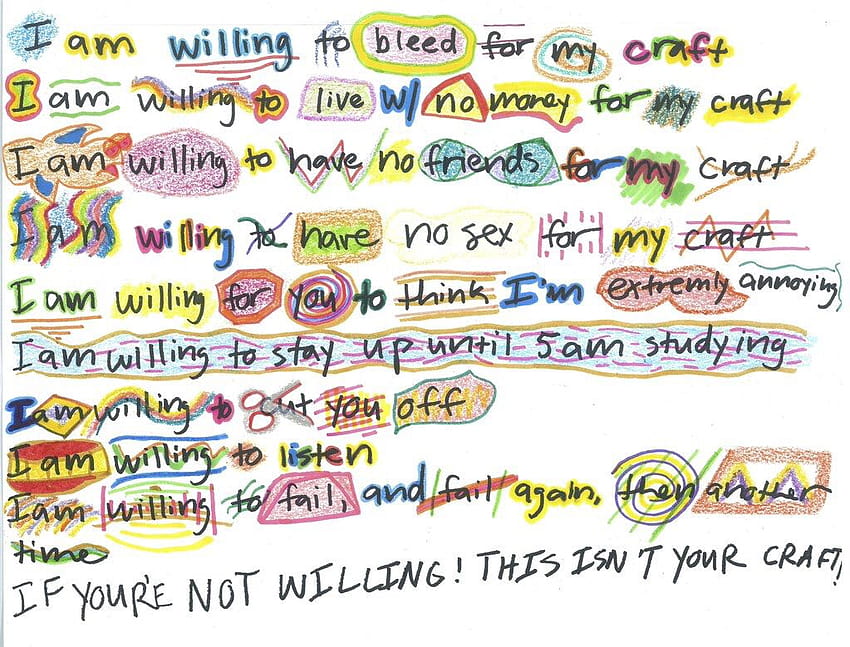 I am willing to bleed for my craft
I am willing to live w/ no money for my craft
I am willing to have no friends for my craft
I am willing to have no sex for my craft
I am willing for you to think I'm extremly annoying
I am willing to stay up until 5am studying
I am willing to cut you off
I am willing to listen
I am willing to fail, and fail again, then another
time
IF YOUR'E NOT WILLING! THIS ISN'T YOUR CRAFT!